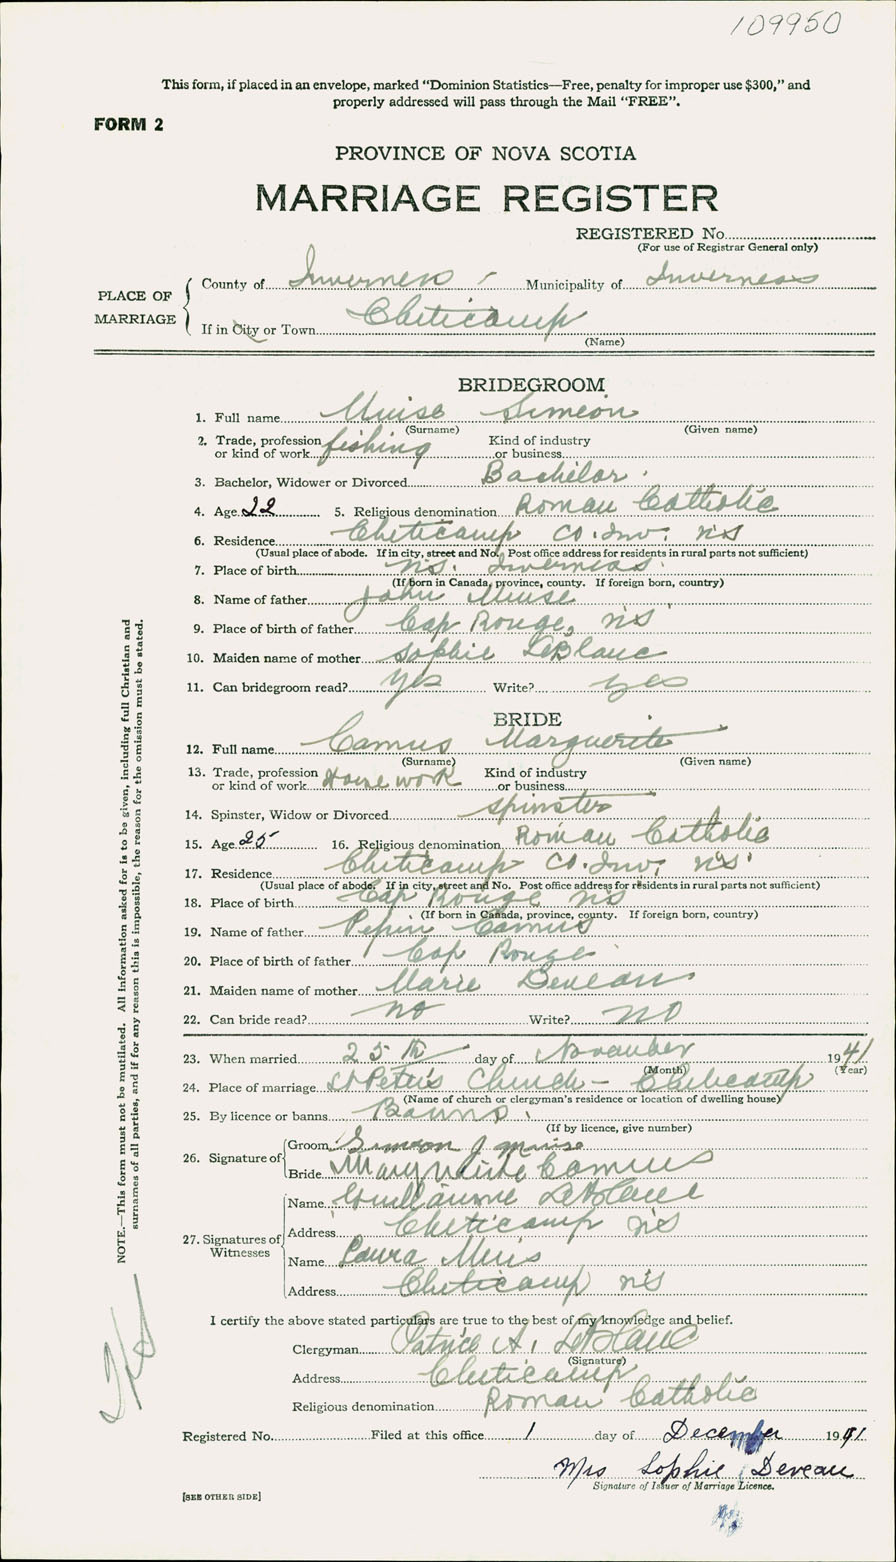 109950
This form, if placed in an envelope, marked “Dominion Statistics—Free, penalty for improper use $300,” and
properly addressed will pass through the Mail “FREE”.
FORM 2
PROVINCE OF NOVA SCOTIA
MARRIAGE REGISTER
REGISTERED No.
(For use of Registrar General only)
PLACE OF MARRIAGE
County of Inverness Municipality of Inverness
If in City or Town Cheticamp
(Name)
BRIDEGROOM
1. Full name Muise Simeon
(Surname) (Given name)
2. Trade, profession or kind of work fishing Kind of industry or business
3. Bachelor, Widower or Divorced Bachelor.
4. Age 22 5. Religious denomination Roman Catholic
6. Residence Cheticamp Co. Inv. NS
(Usual place of abode. If in city, street and No. Post office address for residents in rural parts not sufficient)
7. Place of birth NS. Inverness.
(If born in Canada, province, county. If foreign born, country)
8. Name of father John Muise
9. Place of birth of father Cap Rouge, NS
10. Maiden name of mother Sophie LeBlanc
11. Can bridegroom read? yes Write? yes
BRIDE
12. Full name Camus Marguerite
(Surname) (Given name)
13. Trade, profession or kind of work House work Kind of industry or business
14. Spinster, Widow or Divorced spinster
15. Age 25 16. Religious denomination Roman Catholic
17. Residence Cheticamp Co. Inv. NS
(Usual place of abode. If in city, street and No. Post office address for residents in rural parts not sufficient)
18. Place of birth Cap Rouge NS
(If born in Canada, province, county. If foreign born, country)
19. Name of father Pepin Camus
20. Place of birth of father Cap Rouge
21. Maiden name of mother Marie Deveau
22. Can bride read? no Write? NO
23. When married 25th day of November 1941
(Month) (Year)
24. Place of marriage St Peter's Church - Cheticamp
(Name of church or clergyman's residence or location of dwelling house)
25. By licence or banns Banns.
(If by licence, give number)
26. Signature of
Groom Simeon J Muise
Bride Marguerite Camus
27. Signatures of Witnesses
Name Guillaume LeBlanc
Address Cheticamp NS
Name Laura Muis
Address Cheticamp NS
I certify the above stated particulars are true to the best of my knowledge and belief.
Clergyman Patrice A. LeBlanc
(Signature)
Address Cheticamp
Religious denomination Roman Catholic
Registered No. Filed at this office 1 day of December 1941
Mrs Sophie Deveau
Signature of Issuer of Marriage Licence.
[SEE OTHER SIDE]
NOTE.—This form must not be mutilated. All information asked for is to be given, including full Christian and
surnames of all parties, and if for any reason this is impossible, the reason for the omission must be stated.